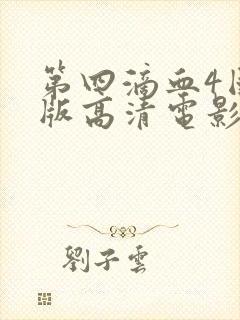 第四滴血4
版高清電影
劉子雲